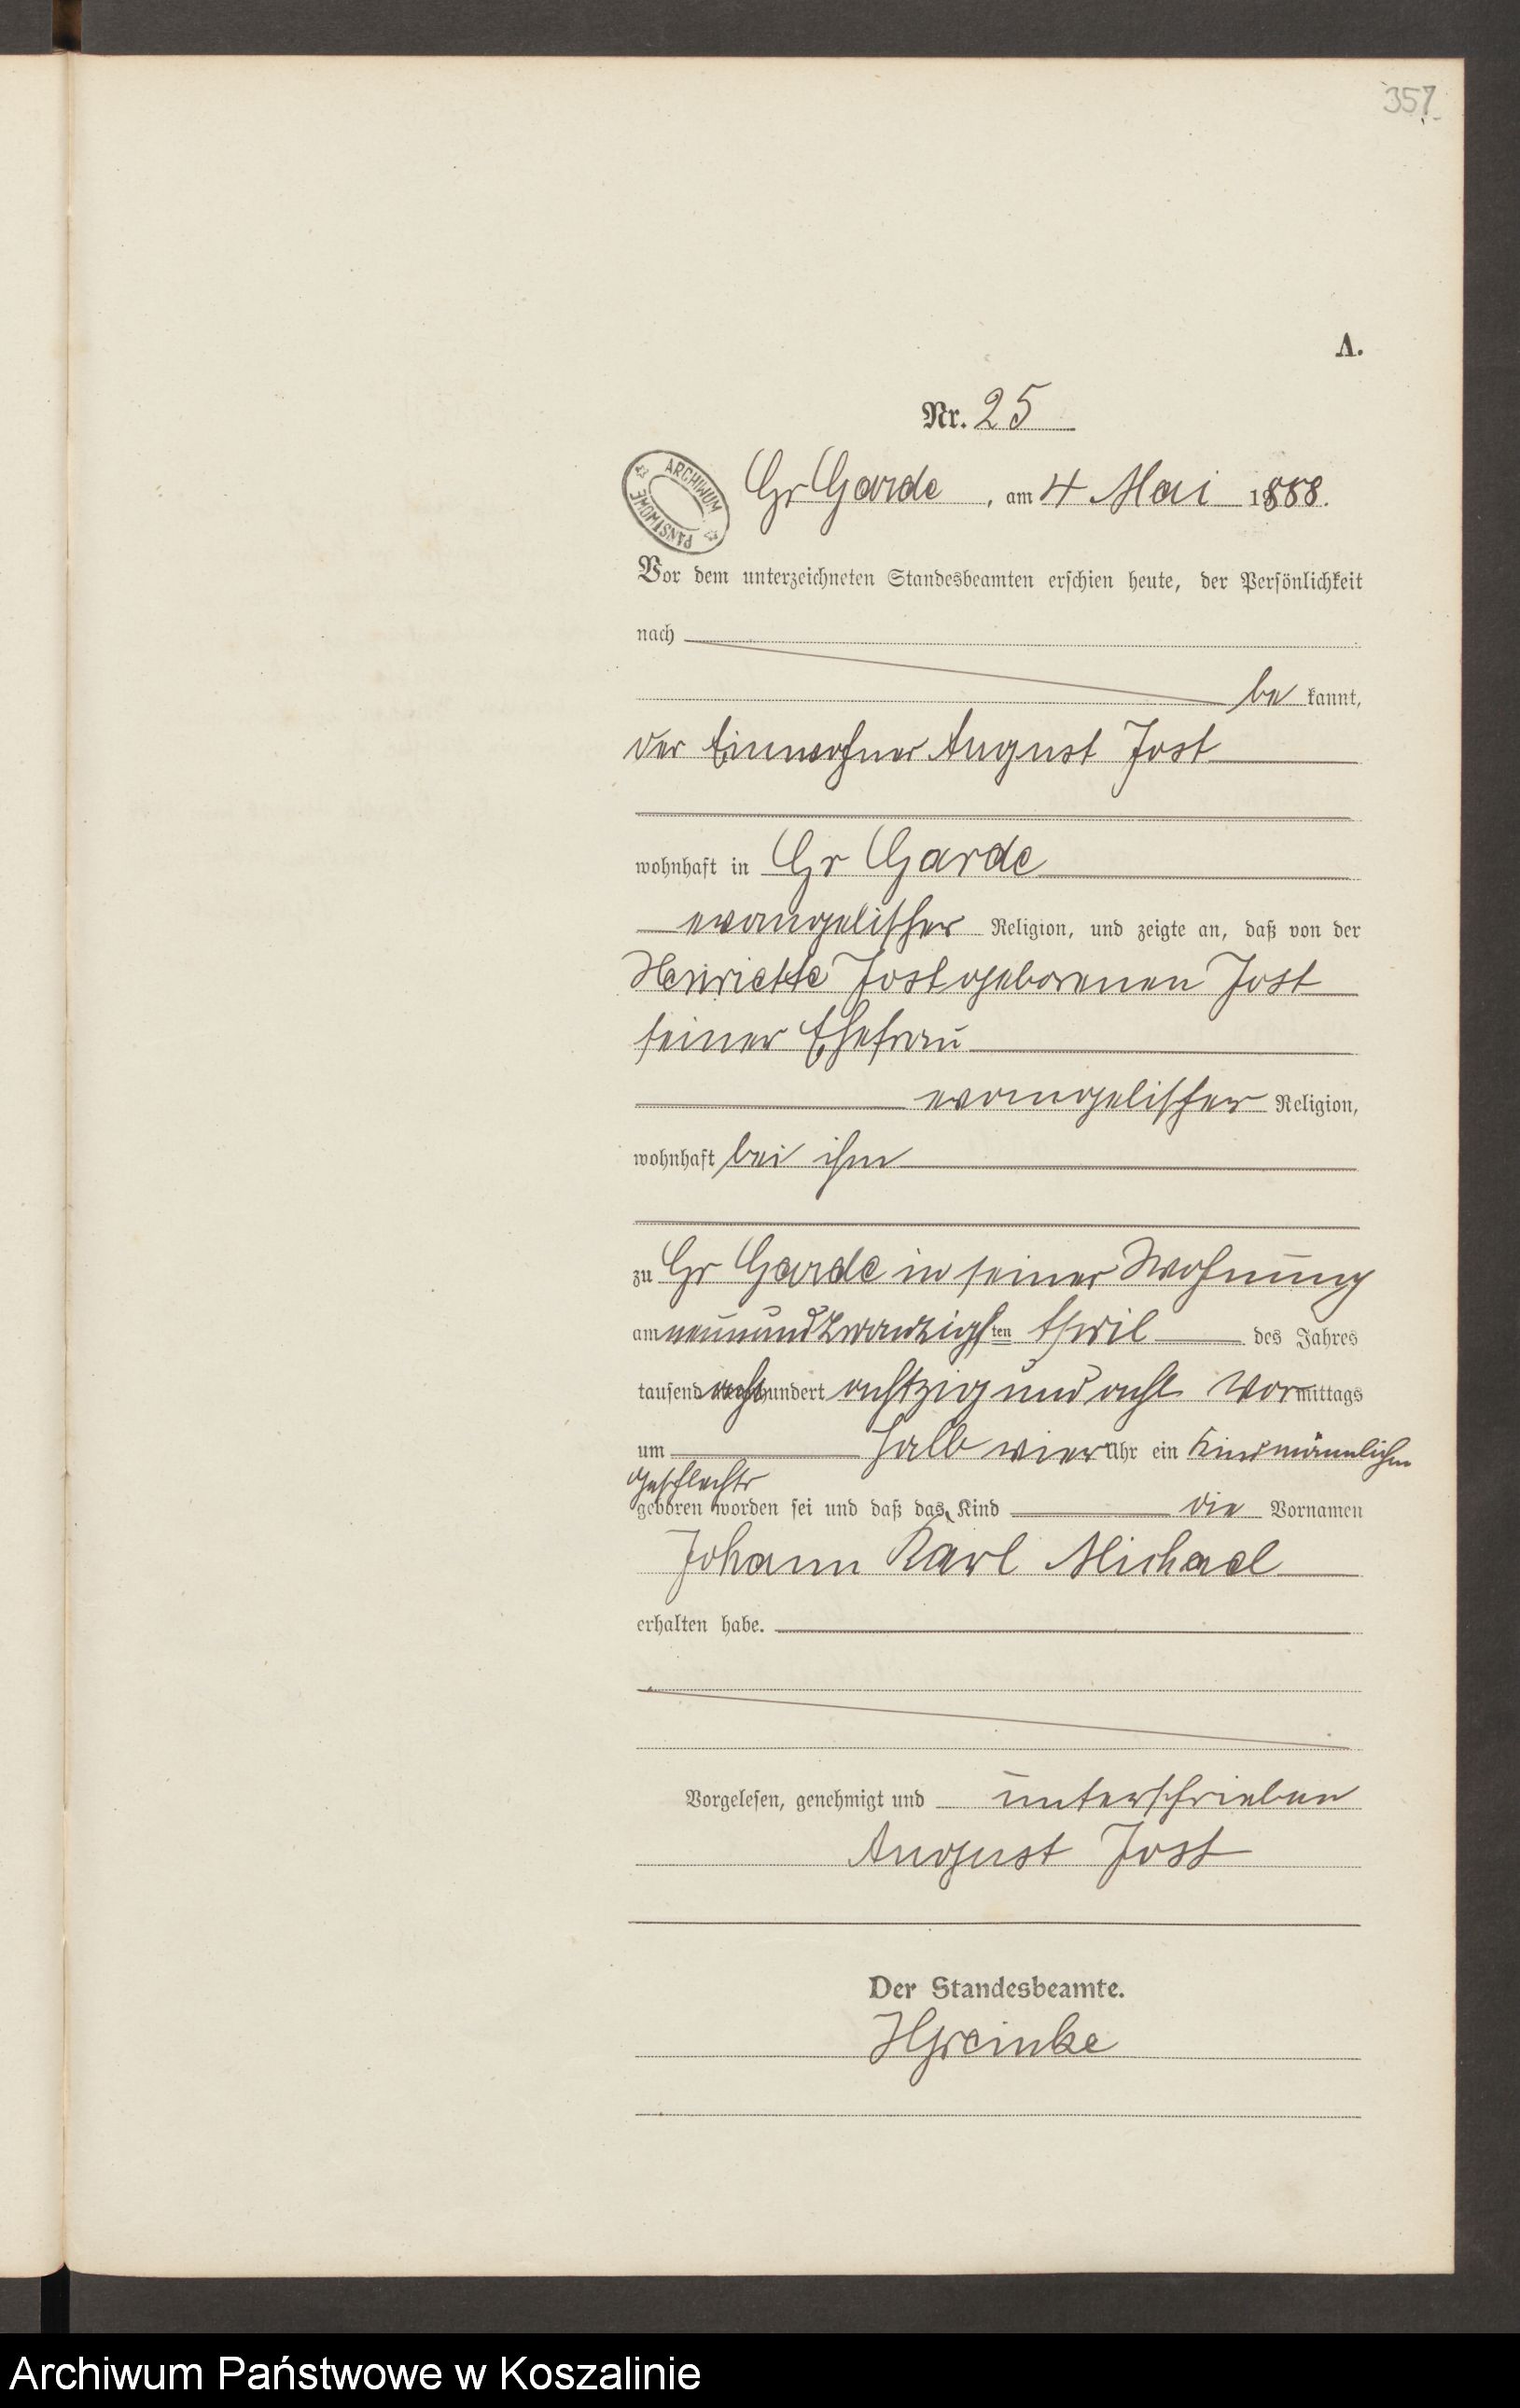 357
A.
Nr. 25
ARCHIWUM PAŃSTWOWE
Gr Garde, am 4 Mai 1888.
Vor dem unterzeichneten Standesbeamten erschien heute, der Persönlichkeit
nach
be kannt,
der Einwohner August Jost
wohnhaft in Gr Garde
evangelischer Religion, und zeigte an, daß von der
Henriette Jost geborenen Jost
seiner Ehefrau
evangelischer Religion,
wohnhaft bei ihm
zu Gr Garde in seiner Wohnung
am neunundzwanzigsten April des Jahres
tausend acht hundert achtzig und acht Vormittags
um halb vier Uhr ein Kind männlichen
Geschlechts
geboren worden sei und daß das Kind die Vornamen
Johann Karl Michael
erhalten habe.
Vorgelesen, genehmigt und unterschrieben
August Jost
Der Standesbeamte.
Archiwum Państwowe w Koszalinie